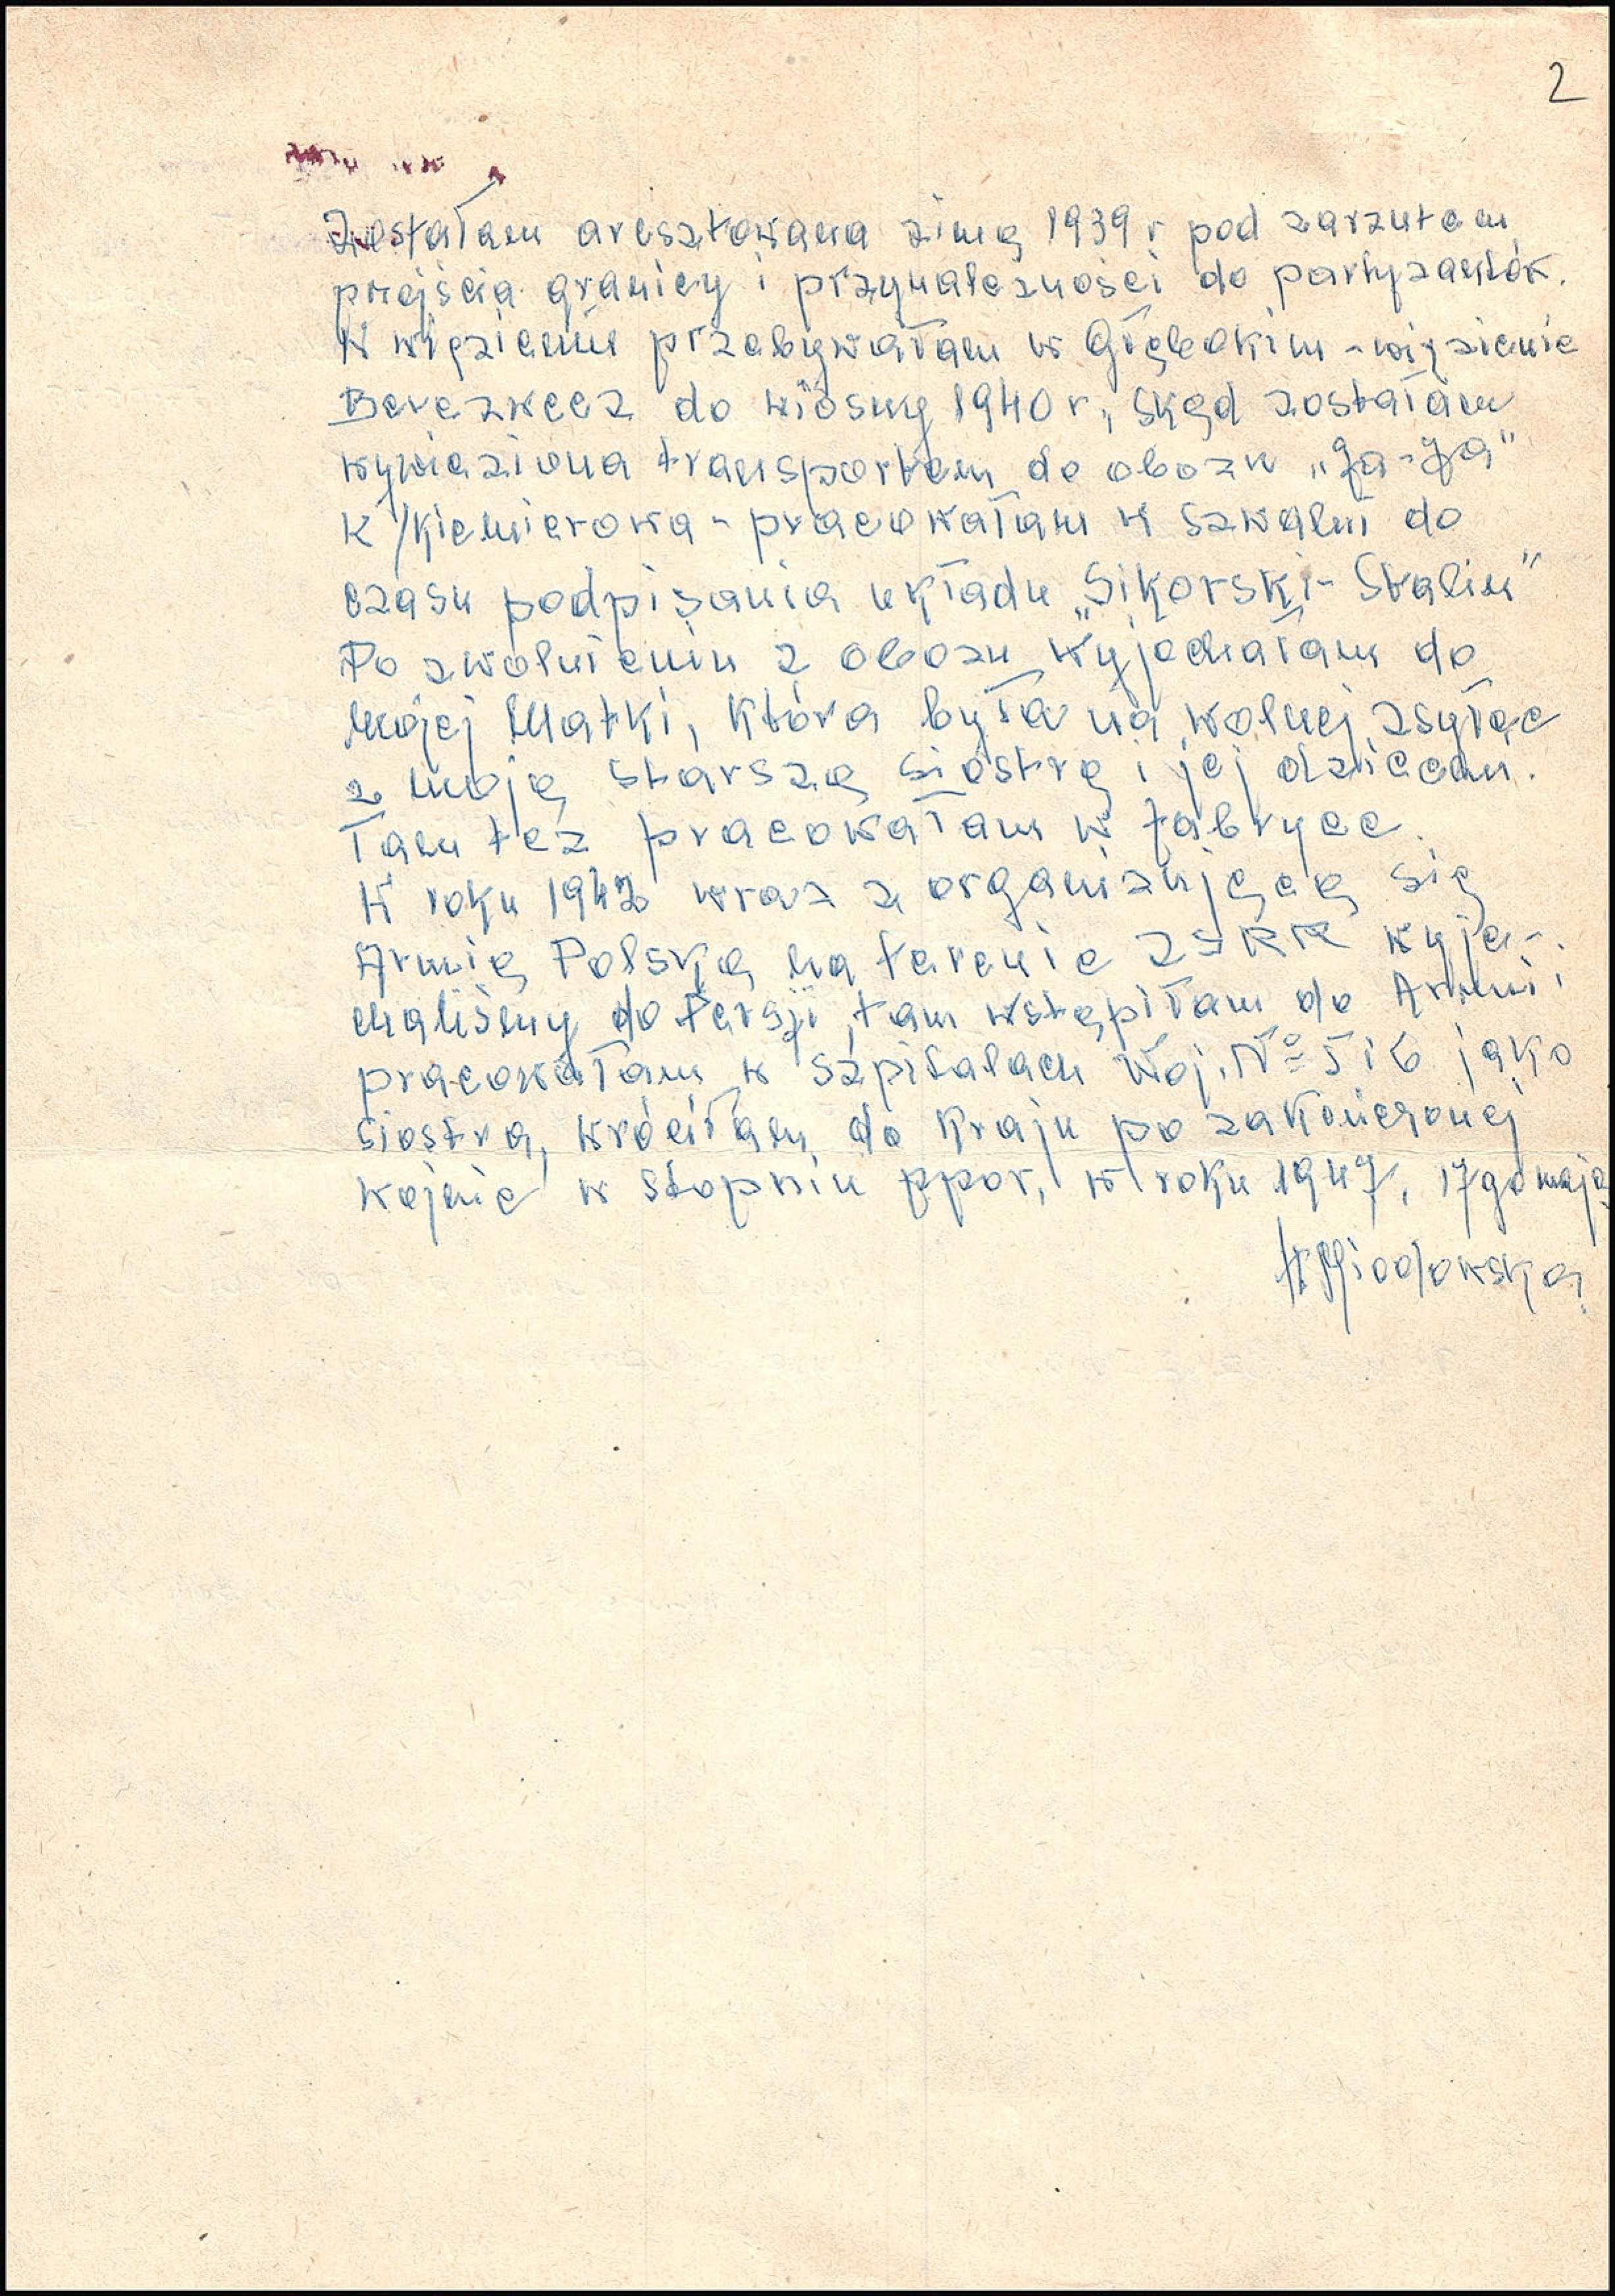 2
Zostałam aresztowana zimą 1939 r pod zarzutem
przejścia granicy i przynależności do partyzantów.
W więzieniu przebywałam w Głębokim - więzienie
Berezwecz do wiosny 1940 r, skąd zostałam
wywieziona transportem do obozu „Ja-Ja"
k/Kiemierowa - pracowałam w szwalni do
czasu podpisania układu „Sikorski - Stalin"
Po zwolnieniu z obozu wyjechałam do
mojej Matki, która była na wolnej zsyłce
z moją starszą siostrą i jej dziećam.
Tam też pracowałam w fabryce.
W roku 1942 wraz z organizującą się
Armią Polską na terenie ZSRR wyje-
chaliśmy do Persji, tam wstąpiłam do Armii
pracowałam w szpitalach Woj. Nº 5 i 6 jako
siostra, wróciłam do Kraju po zakończonej
wojnie w stopniu ppor, w roku 1947, 17go maja
Miodowska